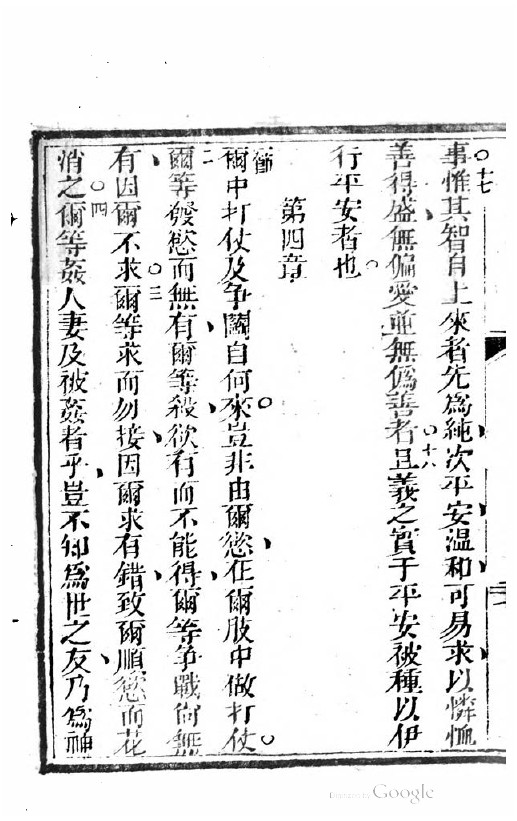 ○十七
事惟其智自上來者先爲純次平安温和可易求以憐恤
善得盛無偏愛並無僞善者○十八且義之實于平安被種以伊
行平安者也
第四章
一節
爾中打仗及争鬬自何來豈非由爾慾在爾肢中做打仗
二
爾等發慾而無有爾等殺欲有而不能得爾等争戰尙無
有因爾不求○三爾等求而勿接因爾求有錯致爾順慾而花
消之○四爾等姦人妻及被姦者乎豈不知爲世之友乃爲神
Digitized by Google